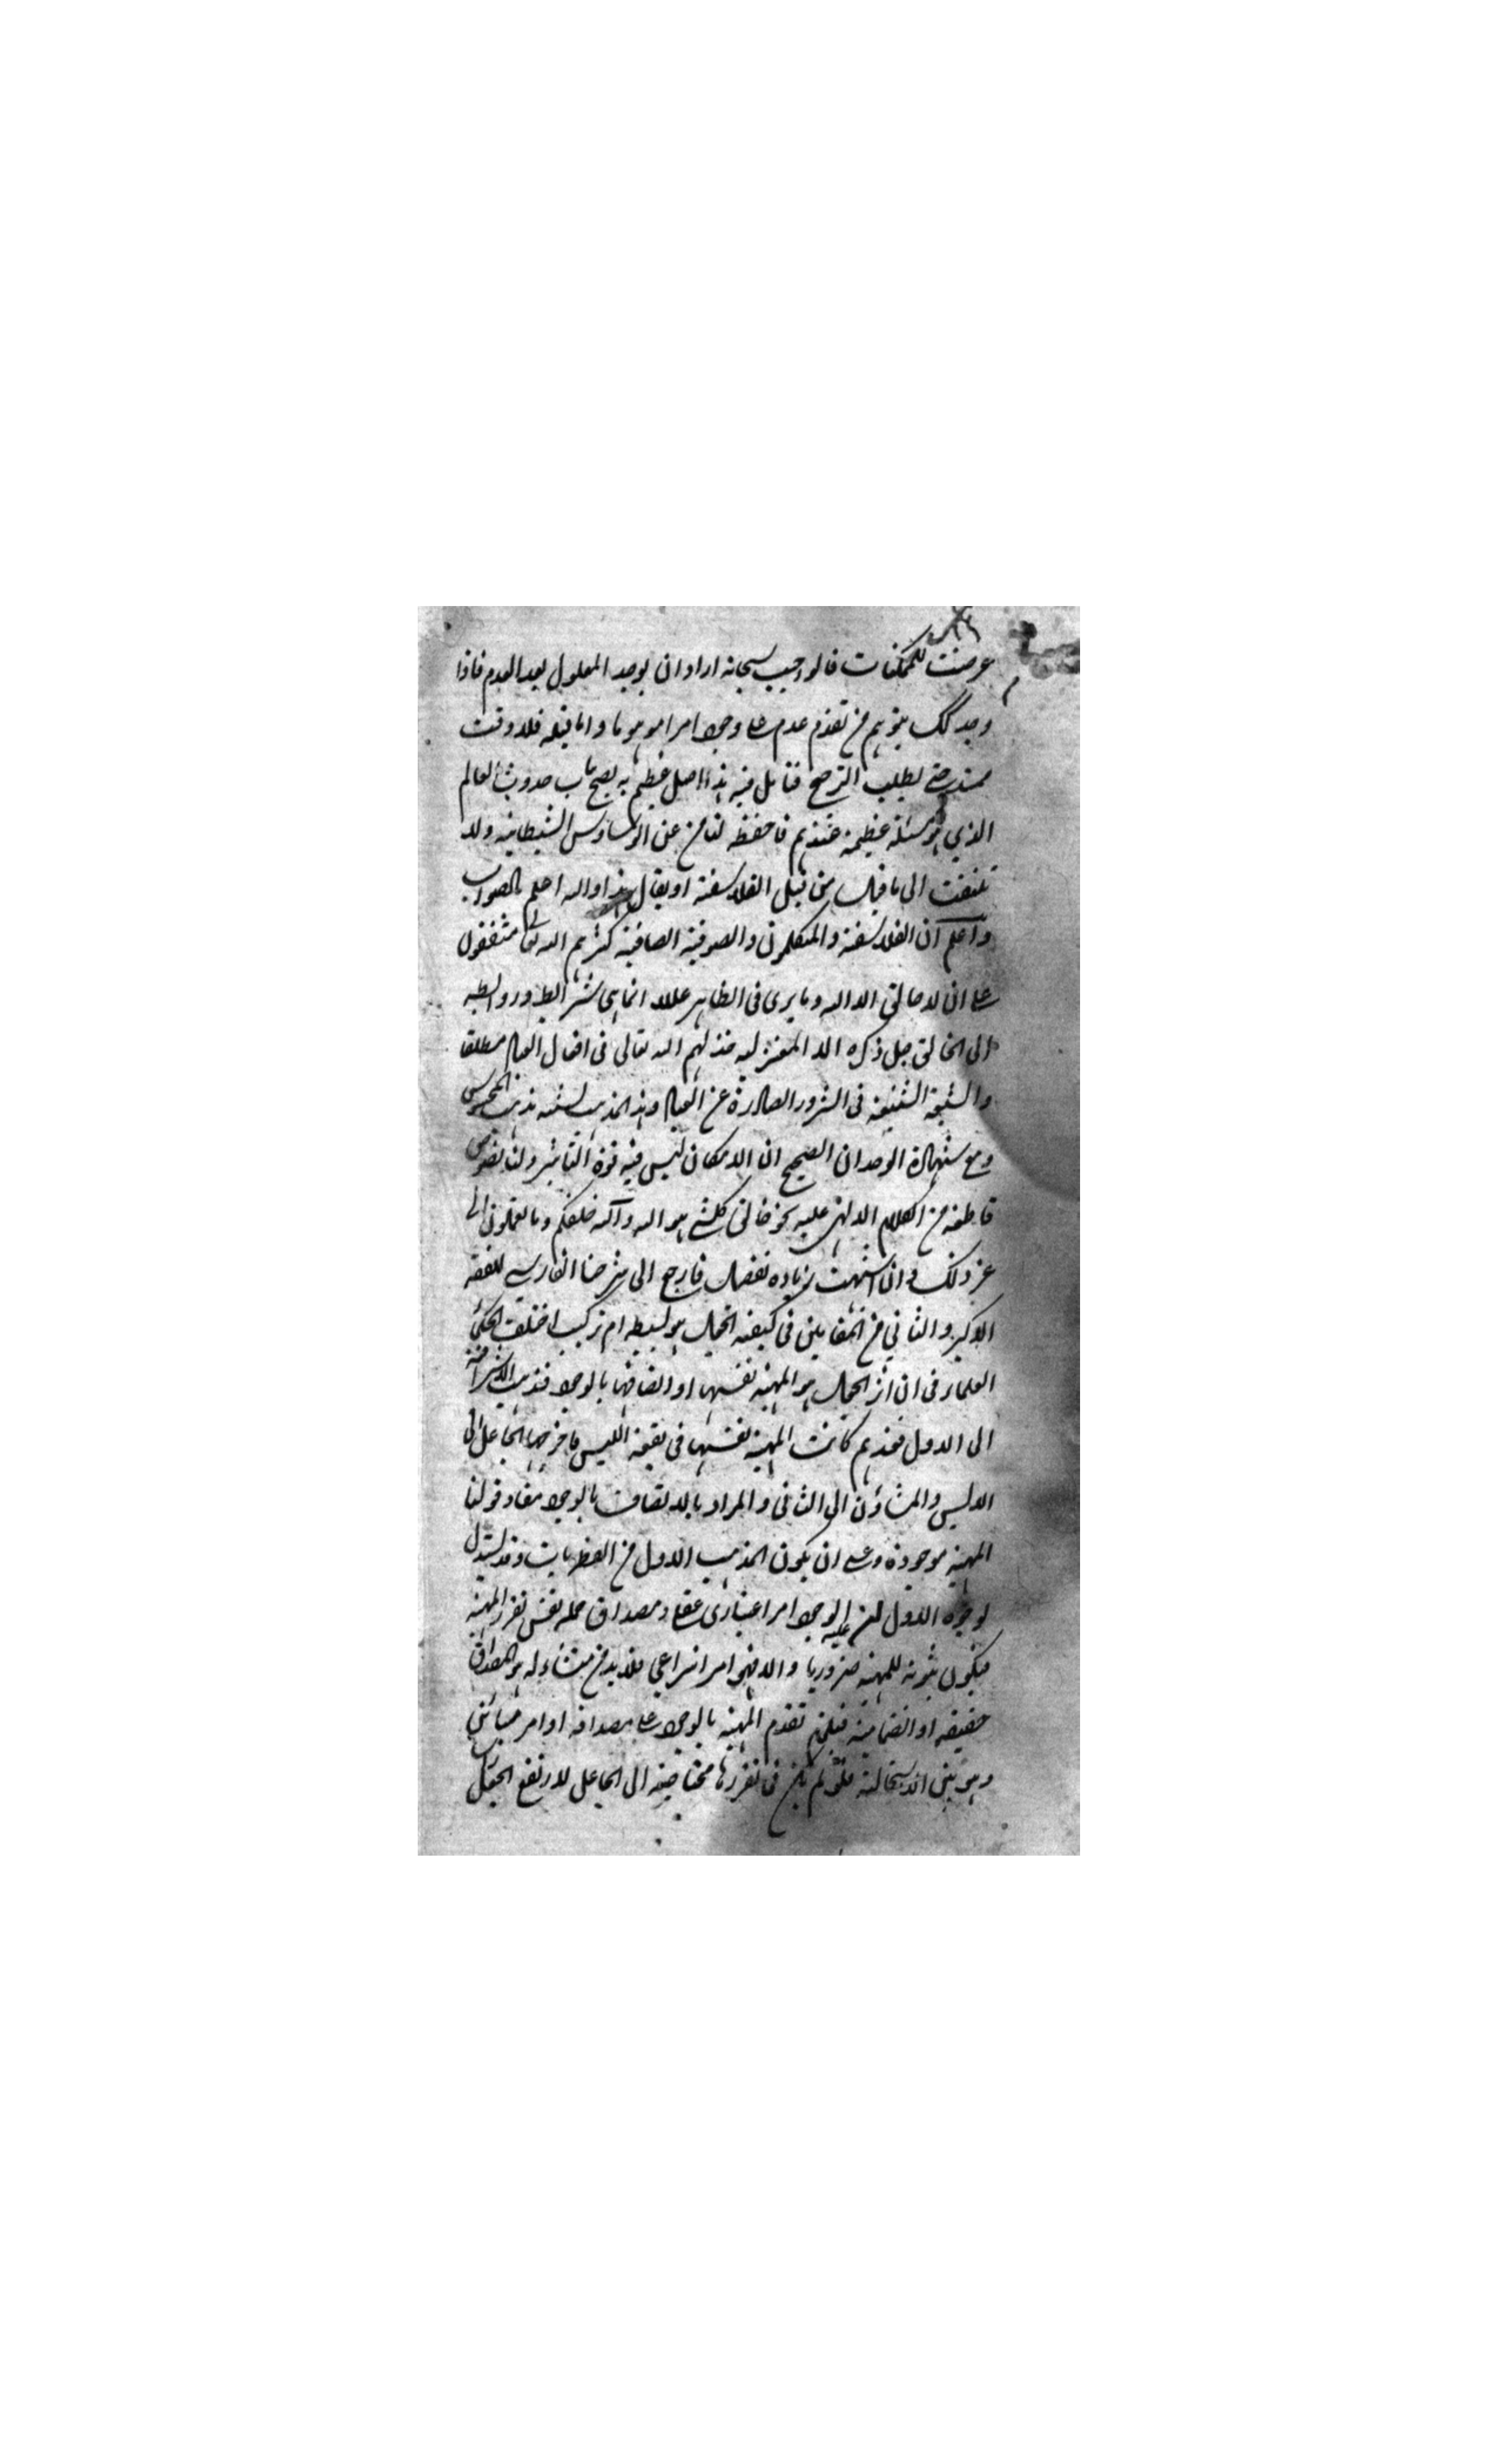 عرضت للممكنات فالواجب سبحانه اراد ان يوجد المعلول بعد العدم فاذا
وجد ذلك يتوهم من تقدم عدم على وجوده امرا موهوما واما قبله فلا وقت
ممتد حتى يطلب الترجيح فتامل فيه هذا اصل عظيم به يصح باب حدوث العالم
الذي هو مسئلة عظيمة عندهم فاحفظه لنا من عن الوساوس الشيطانية ولا
تلتفت الى ما قيل من قبل الفلاسفة او يقال هذا والله اعلم بالصواب
واعلم ان الفلاسفة والمتكلمون والصوفية الصافية كثرهم الله تعالى متفقون
على ان لا خالق الا الله وما يرى في الظاهر عللا انما هي شرائط وروابط
الى الخالق جل ذكره الا المعتزلة خذلهم الله تعالى في افعال العباد مطلقا
والشيعة الشنيعة في الشرور الصادرة عن العباد وهذا المذهب يشبه مذهب المجوس
ومع شهادة الوجدان الصحيح ان الامكان ليس فيه قوة التاثير ولنا نصوص
قاطعة من الكلام الالهي عليه نحو خالق كل شيء هو الله والله خلقكم وما تعملون الى
غير ذلك وان اشتهيت زيادة تفصيل فارجع الى شرحنا الفارسي للفقه
الاكبر والثاني من المقامين في كيفية الجعل هو بسيط ام تركيب اختلف الحكماء
العلماء في ان اثر الجعل هو المهية نفسها او اتصافها بالوجود فذهب الاشراقية
الى الاول فعندهم كانت المهية نفسها في بقعة الليس فاخرجها الجاعل الى
الايس والمشاؤن الى الثاني والمراد بالاتصاف بالوجود مفاد قولنا
المهية موجودة وعسى ان يكون المذهب الاول من الفطريات وقد يستدل
بوجوه الاول عليه الوجود امر اعتباري عقلي ومصداق حمله نفس تقرر المهية
فيكون ثبوته للمهية ضروريا والا فهو امر انتزاعي فلا بد من منشاء له هو المصداق
حقيقه او انضمامية فيلزم تقدم المهية بالوجود على مصداقه او امر مبائن
وهو بين الاستحالة فلو لم يكن في تقررها محتاجة الى الجاعل لارتفع الجعل